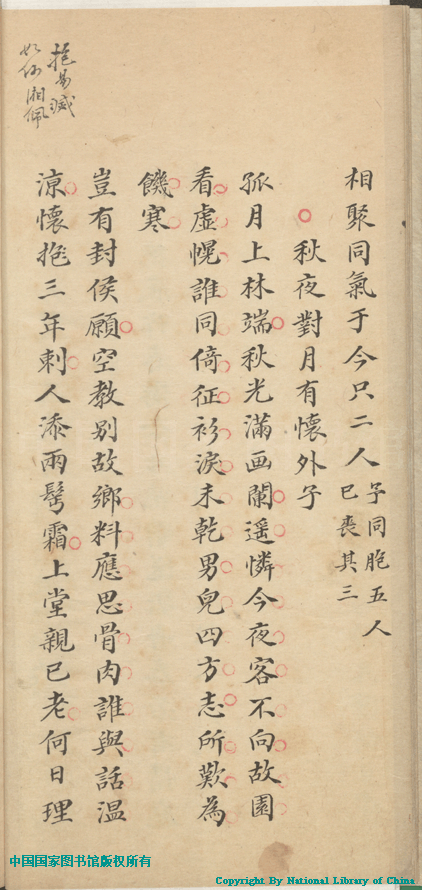 相聚同氣于今只二人子同胞五人
已喪其三
秋夜對月有懷外子
孤月上林端秋光滿画闌遥憐今夜客不向故園
看虛幌誰同倚征衫淚未乾男兒四方志所歎為
饑寒
豈有封侯願空教別故鄉料應思骨肉誰與話温
涼懷抱三年刺人添兩鬢霜上堂親已老何日理
抱易滅
如何湘佩
中国国家图书馆版权所有
Copyright By National Library of China